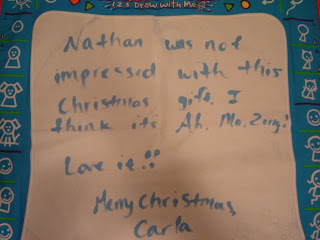 123 Draw with Me
Nathan was not
impressed with this
Christmas gift. I
think its Ah. Ma. Zing!
Love it!!
Merry Christmas
Carla